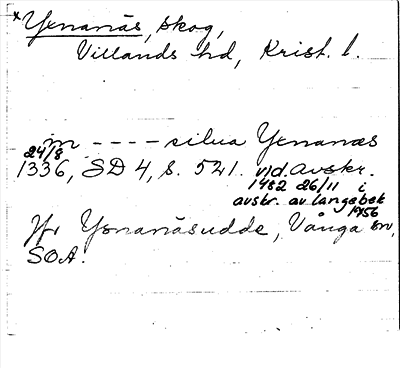 *Yænanäs, skog,
Villands hd, Krist. l.
in ---- silua Yænanæs
24/8
1336, SD 4, s. 521. vid. avskr.
1482 26/11 i
avskr. av Langebek
1756
Jfr Ysnanäsudde, Vånga sn,
SOA.